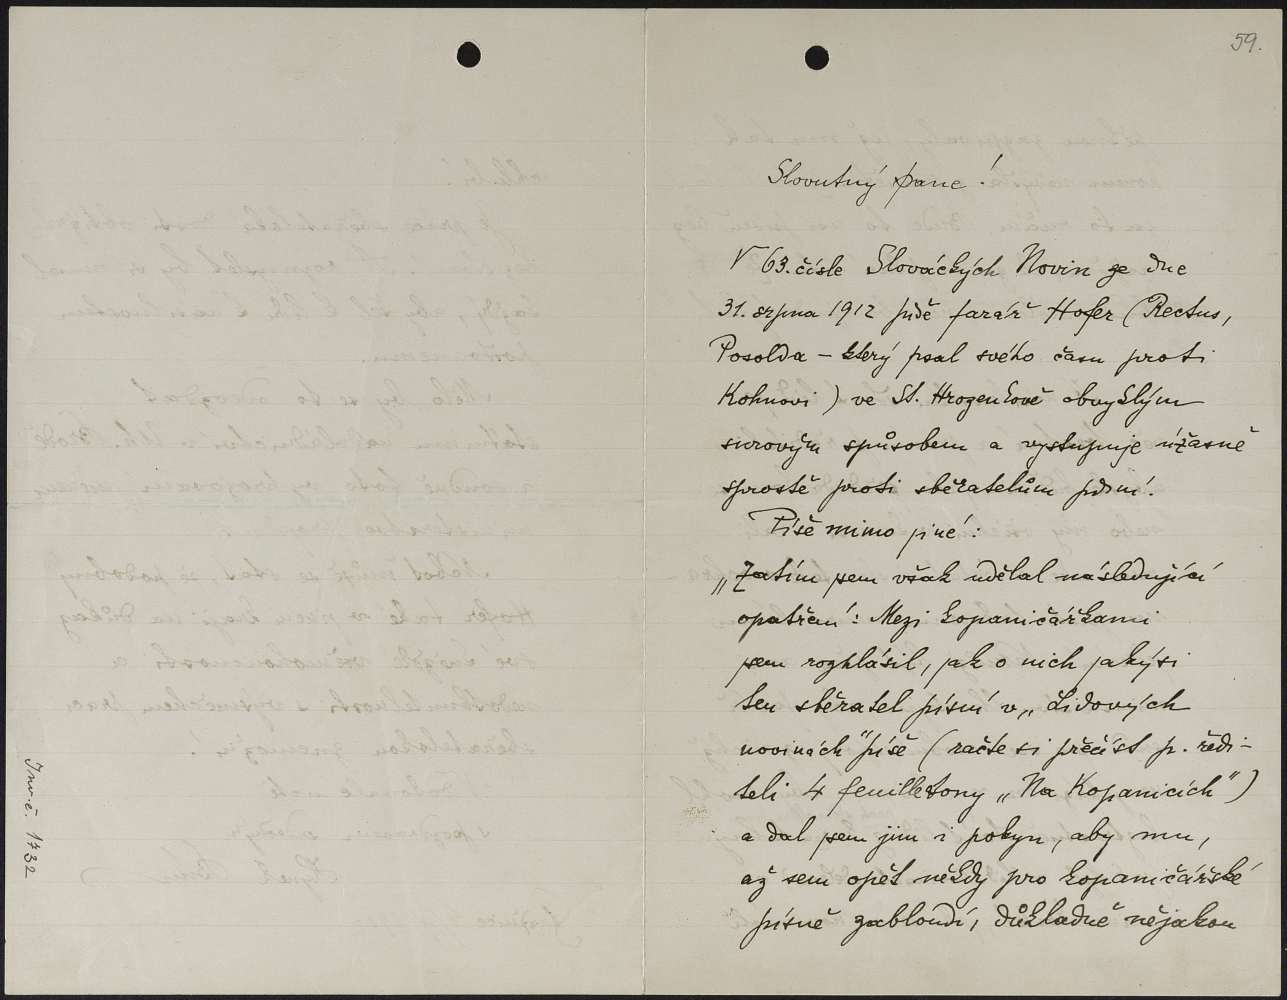 59.
Slovutný pane!
V 63. čísle Slováckých Novin ze dne
31. srpna 1912 píše farář Hofer (Rectus,
Posolda – který psal svého času proti
Kohnovi) ve St. Hrozenkově obvyklým
surovým spůsobem a vystupuje úžasně
sprostě proti sběratelům písní.
Píše mimo jiné:
„Zatím jsem však udělal následující
opatření: Mezi kopaničářkami
jsem rozhlásil, jak o nich jakýsi
ten sběratel písní v „Lidových
novinách" píše (račte si přečíst p. ředi-
teli 4 feuilletony „Na Kopanicích")
a dal jsem jim i pokyn, aby mu,
až sem opět někdy pro kopaničářské
písně zabloudí, důkladně nějakou
Inv. č. 1732